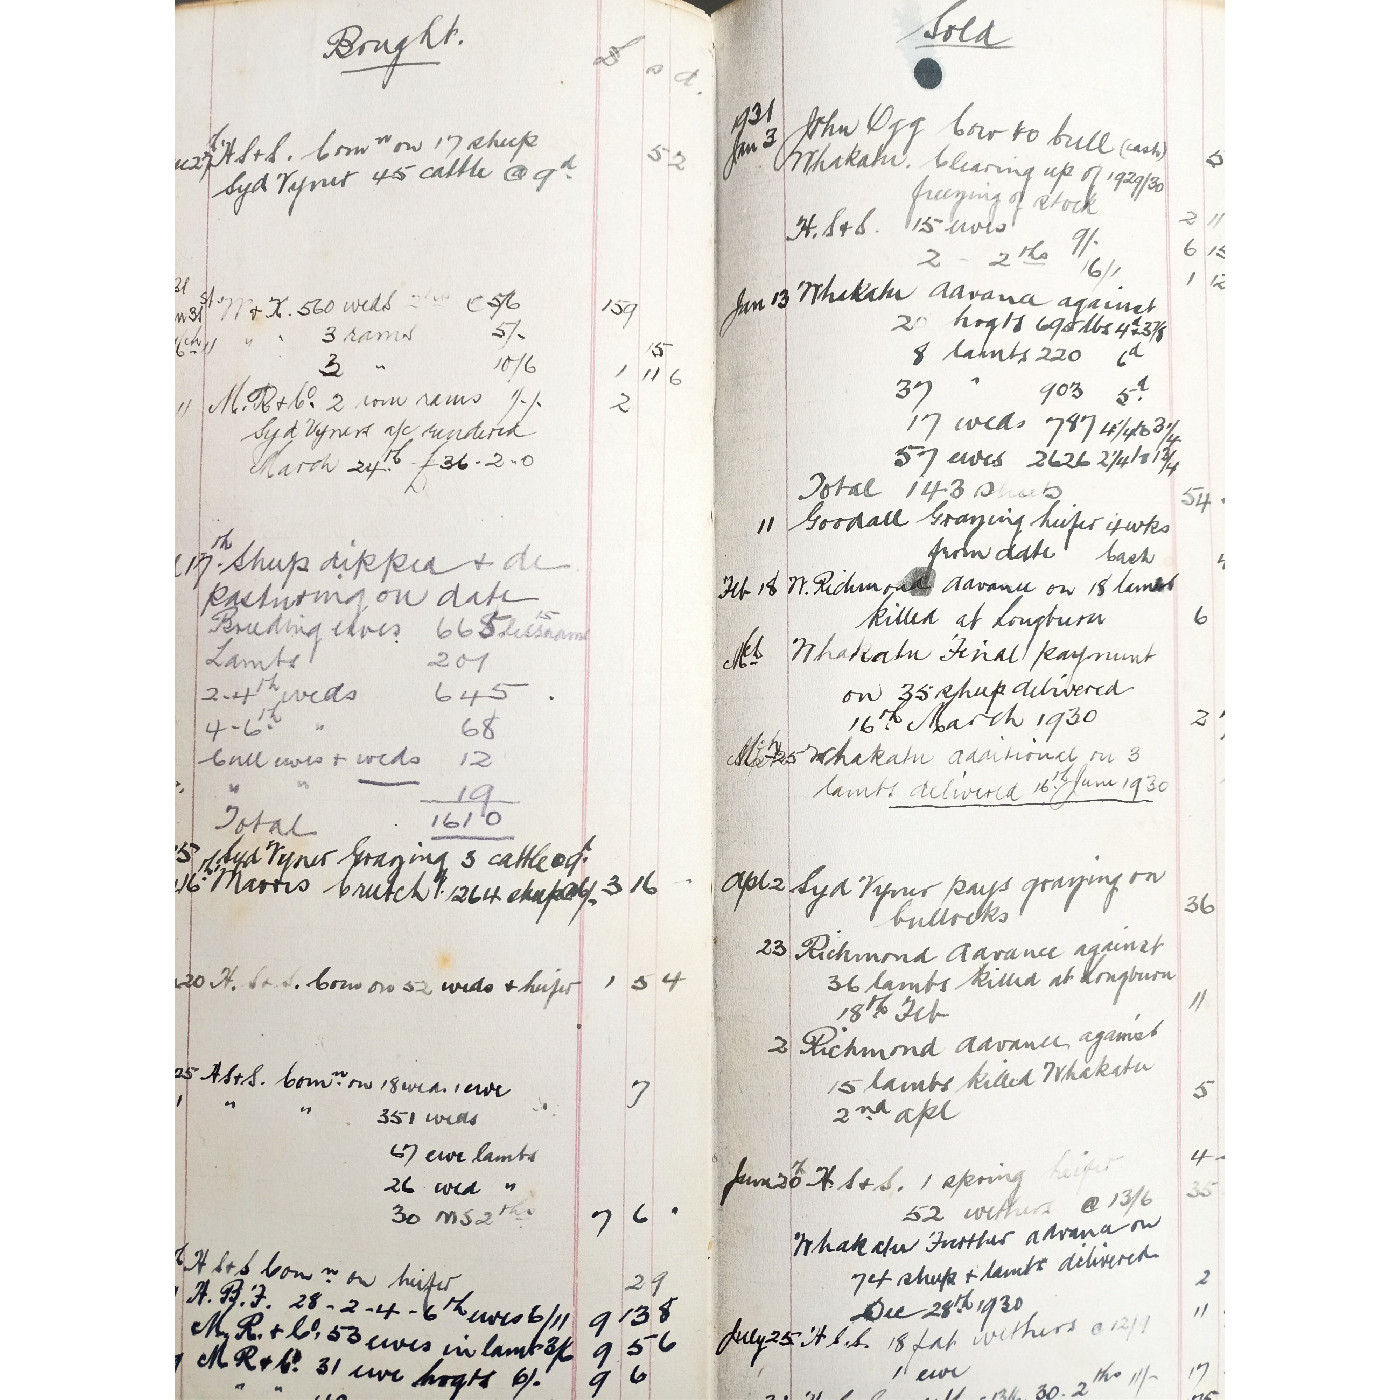 Bought.
£ s d.
27th H S & S. Comn on 17 sheep 5 2
Syd Vyner 45 cattle @ 9d.
31st W & K. 560 weds 2ths @ 5/6 159
" " 3 rams 5/- 15
3 " 10/6 1 11 6
11 M. R & Co. 2 rom rams 1/-/- 2
Syd Vyners a/c rendered
March 24th £36-2-0
17th Sheep dipped & de
pasturing on date
Breeding ewes 665 less 15 rams
Lambs 201
2-4th weds 645
4-6th " 68
Cull ewes & weds 12
" " 19
Total 1610
Syd Vyner Grazing 3 cattle @ 9d.
16th Marris Crutchg 1264 sheep @ 6/- 3 16 -
20 H. S & S. Comn on 52 weds & heifer 1 5 4
25 H S & S. Comn on 18 wed. 1 ewe 7
" " 351 weds
67 ewe lambs
26 wed "
30 MS 2ths 7 6 "
H S & S Comn on heifer 2 9
H. B. F. 28-2-4-6th ewes 6/11 9 13 8
M, R. & Co. 53 ewes in lamb 3/6 9 5 6
M R & Co. 31 ewe hogts 6/- 9 6
" "
Sold
1931
Jan 3 John Ogg cow to bull (cash) 5
Whakatu. Clearing up of 1929/30
freezing of stock 2 11
H. S & S. 15 ewes 9/- 6 15
2 - 2ths 16/1 1 12
Jan 13 Whakatu advance against
20 hogts 695 lbs 4d & 3 7/8
8 lambs 220 6d
37 " 903 5d
17 weds 787 4 1/4 to 3 1/4
57 ewes 2626 2 1/4 to 1 3/4
Total 143 sheep 54
11 Goodall Grazing heifer 4 wks
from date Cash 4
Feb 18 W. Richmond advance on 18 lambs
killed at Longburn 6
Mch Whakatu Final payment
on 35 sheep delivered
16th March 1930 2
Mch 25 Whakatu additional on 3
lambs delivered 16th June 1930
Apl 2 Syd Vyner pays grazing on
bullocks 36
23 Richmond Advance against
36 lambs killed at Longburn
18th Feb 11
2 Richmond advance, against
15 lambs killed Whakatu
2nd Apl 5
June 20th H. S & S. 1 spring heifer 4 -
52 wethers @ 13/6 35
Whakatu Further advance on
74 sheep & lambs delivered
Dec 28th 1930 2
July 25 H S. S. 18 fat wethers @ 12/9 11
1 ewe
30. 2ths 11/- 17